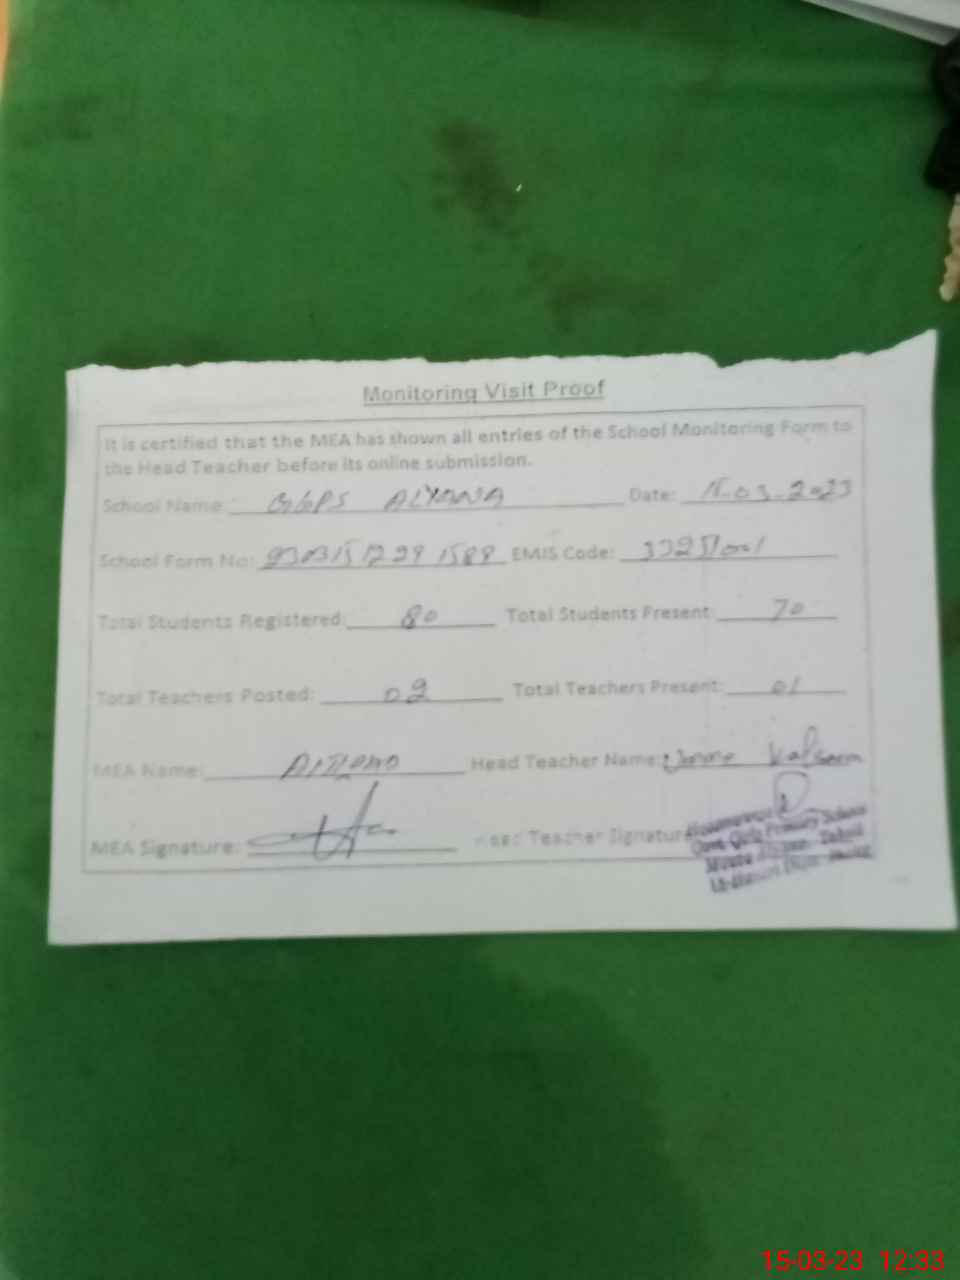 Monitoring Visit Proof
It is certified that the MEA has shown all entries of the School Monitoring Form to
the Head Teacher before its online submission.
School Name: GGPS ALYANA Date: 15-03-2023
School Form No: EMIS Code:
Total Students Registered: 80 Total Students Present: 70
Total Teachers Posted: 02 Total Teachers Present: 01
MEA Name: Head Teacher Name: Kalsoom
MEA Signature: Head Teacher Signature
Govt. Girls Primary School
15-03-23 12:33